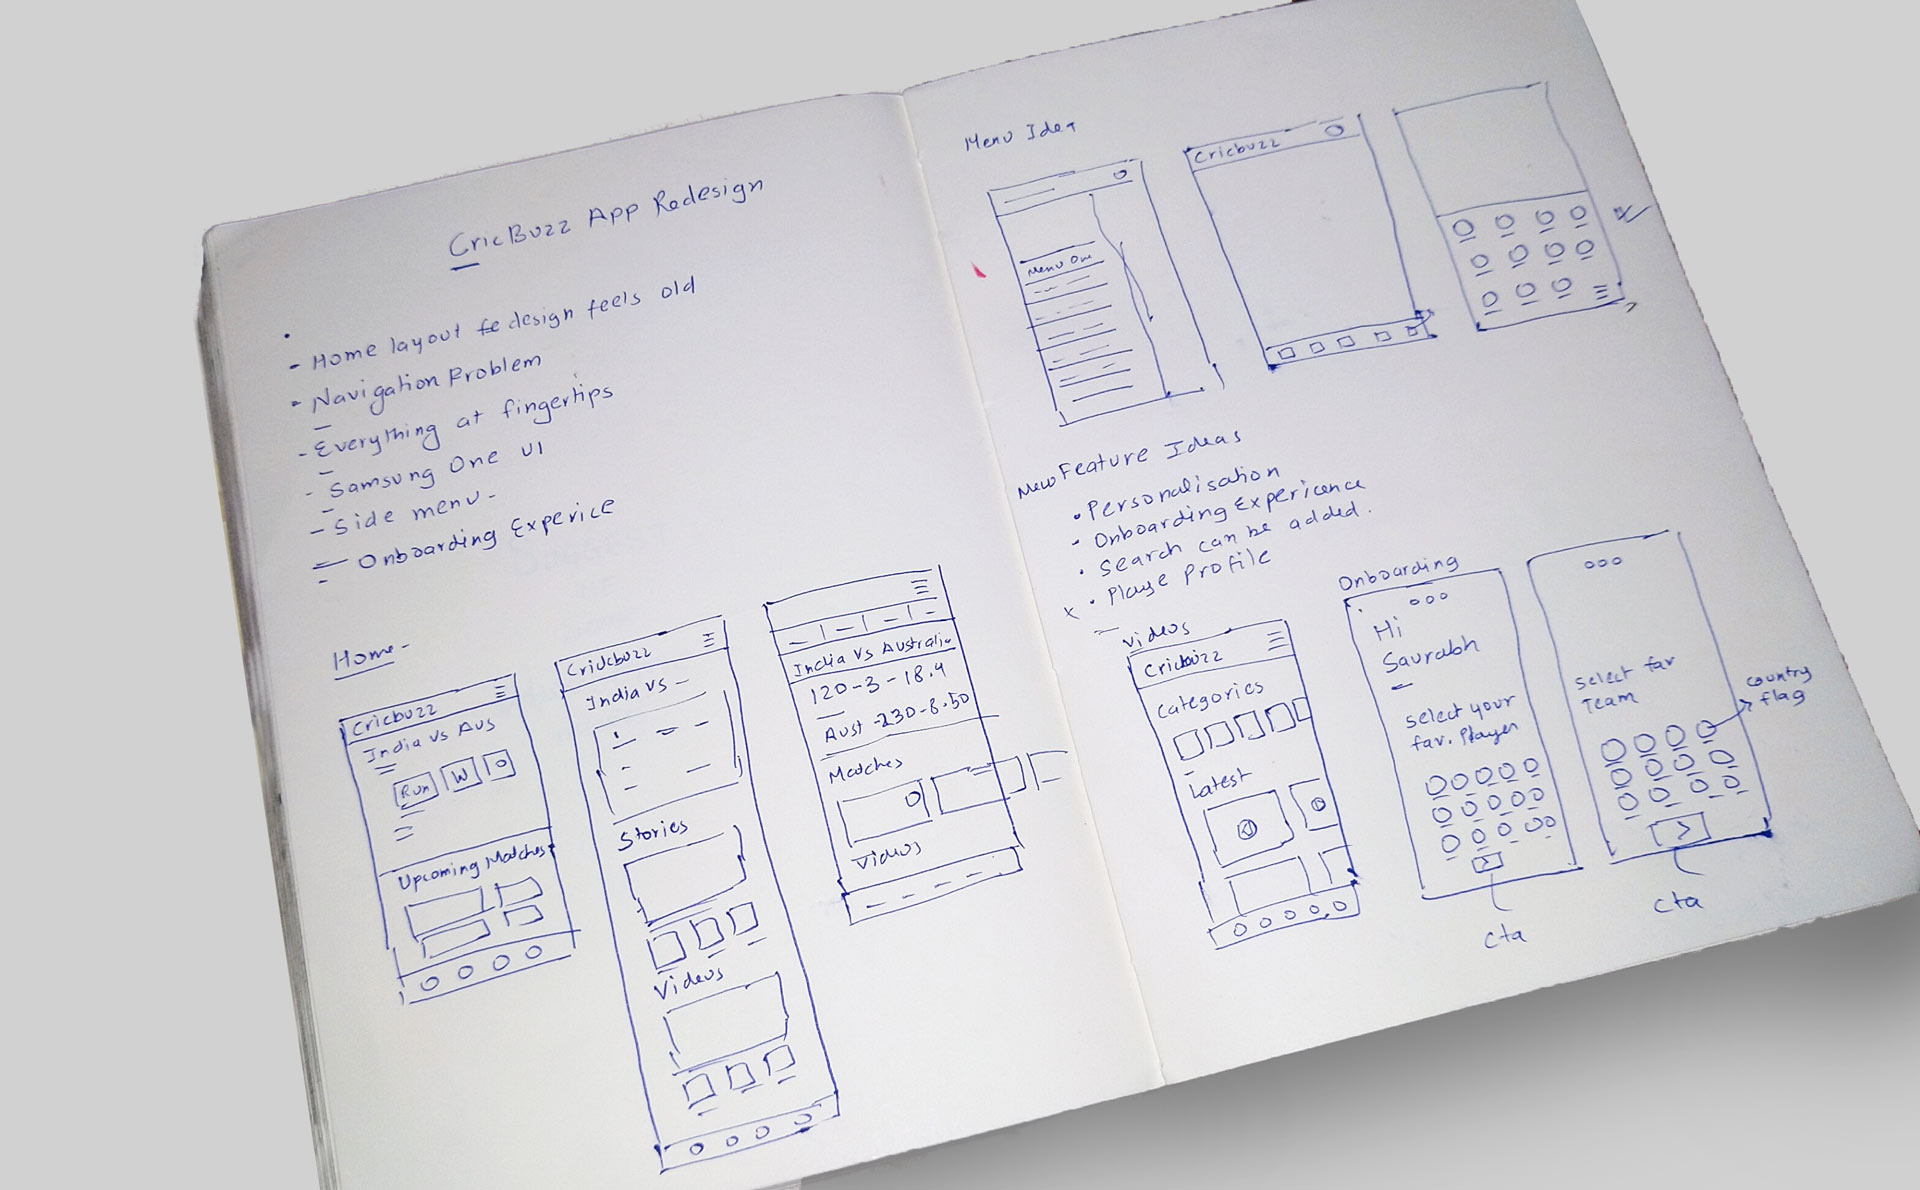 CricBuzz App Redesign
- Home layout fe design feels old
- Navigation Problem
- Everything at fingertips
- Samsung One UI
- Side menu -
- Onboarding Experice
Home -
Cricbuzz
India vs Aus
Run W O
Upcoming Matches
Cricbuzz
India vs -
Stories
Videos
India vs Australia
120-3-18.4
Aust -230-8.50
Matches
Videos
Menu Idea
Menu One
Cricbuzz
New Feature Ideas
• Personalisation
- Onboarding Experience
• Search can be added.
x • Playe Profile
Videos
Cricbuzz
Categories
Latest
Onboarding
Hi
Saurabh
Select your
fav. Player
cta
Select fav
Team
country
flag
cta